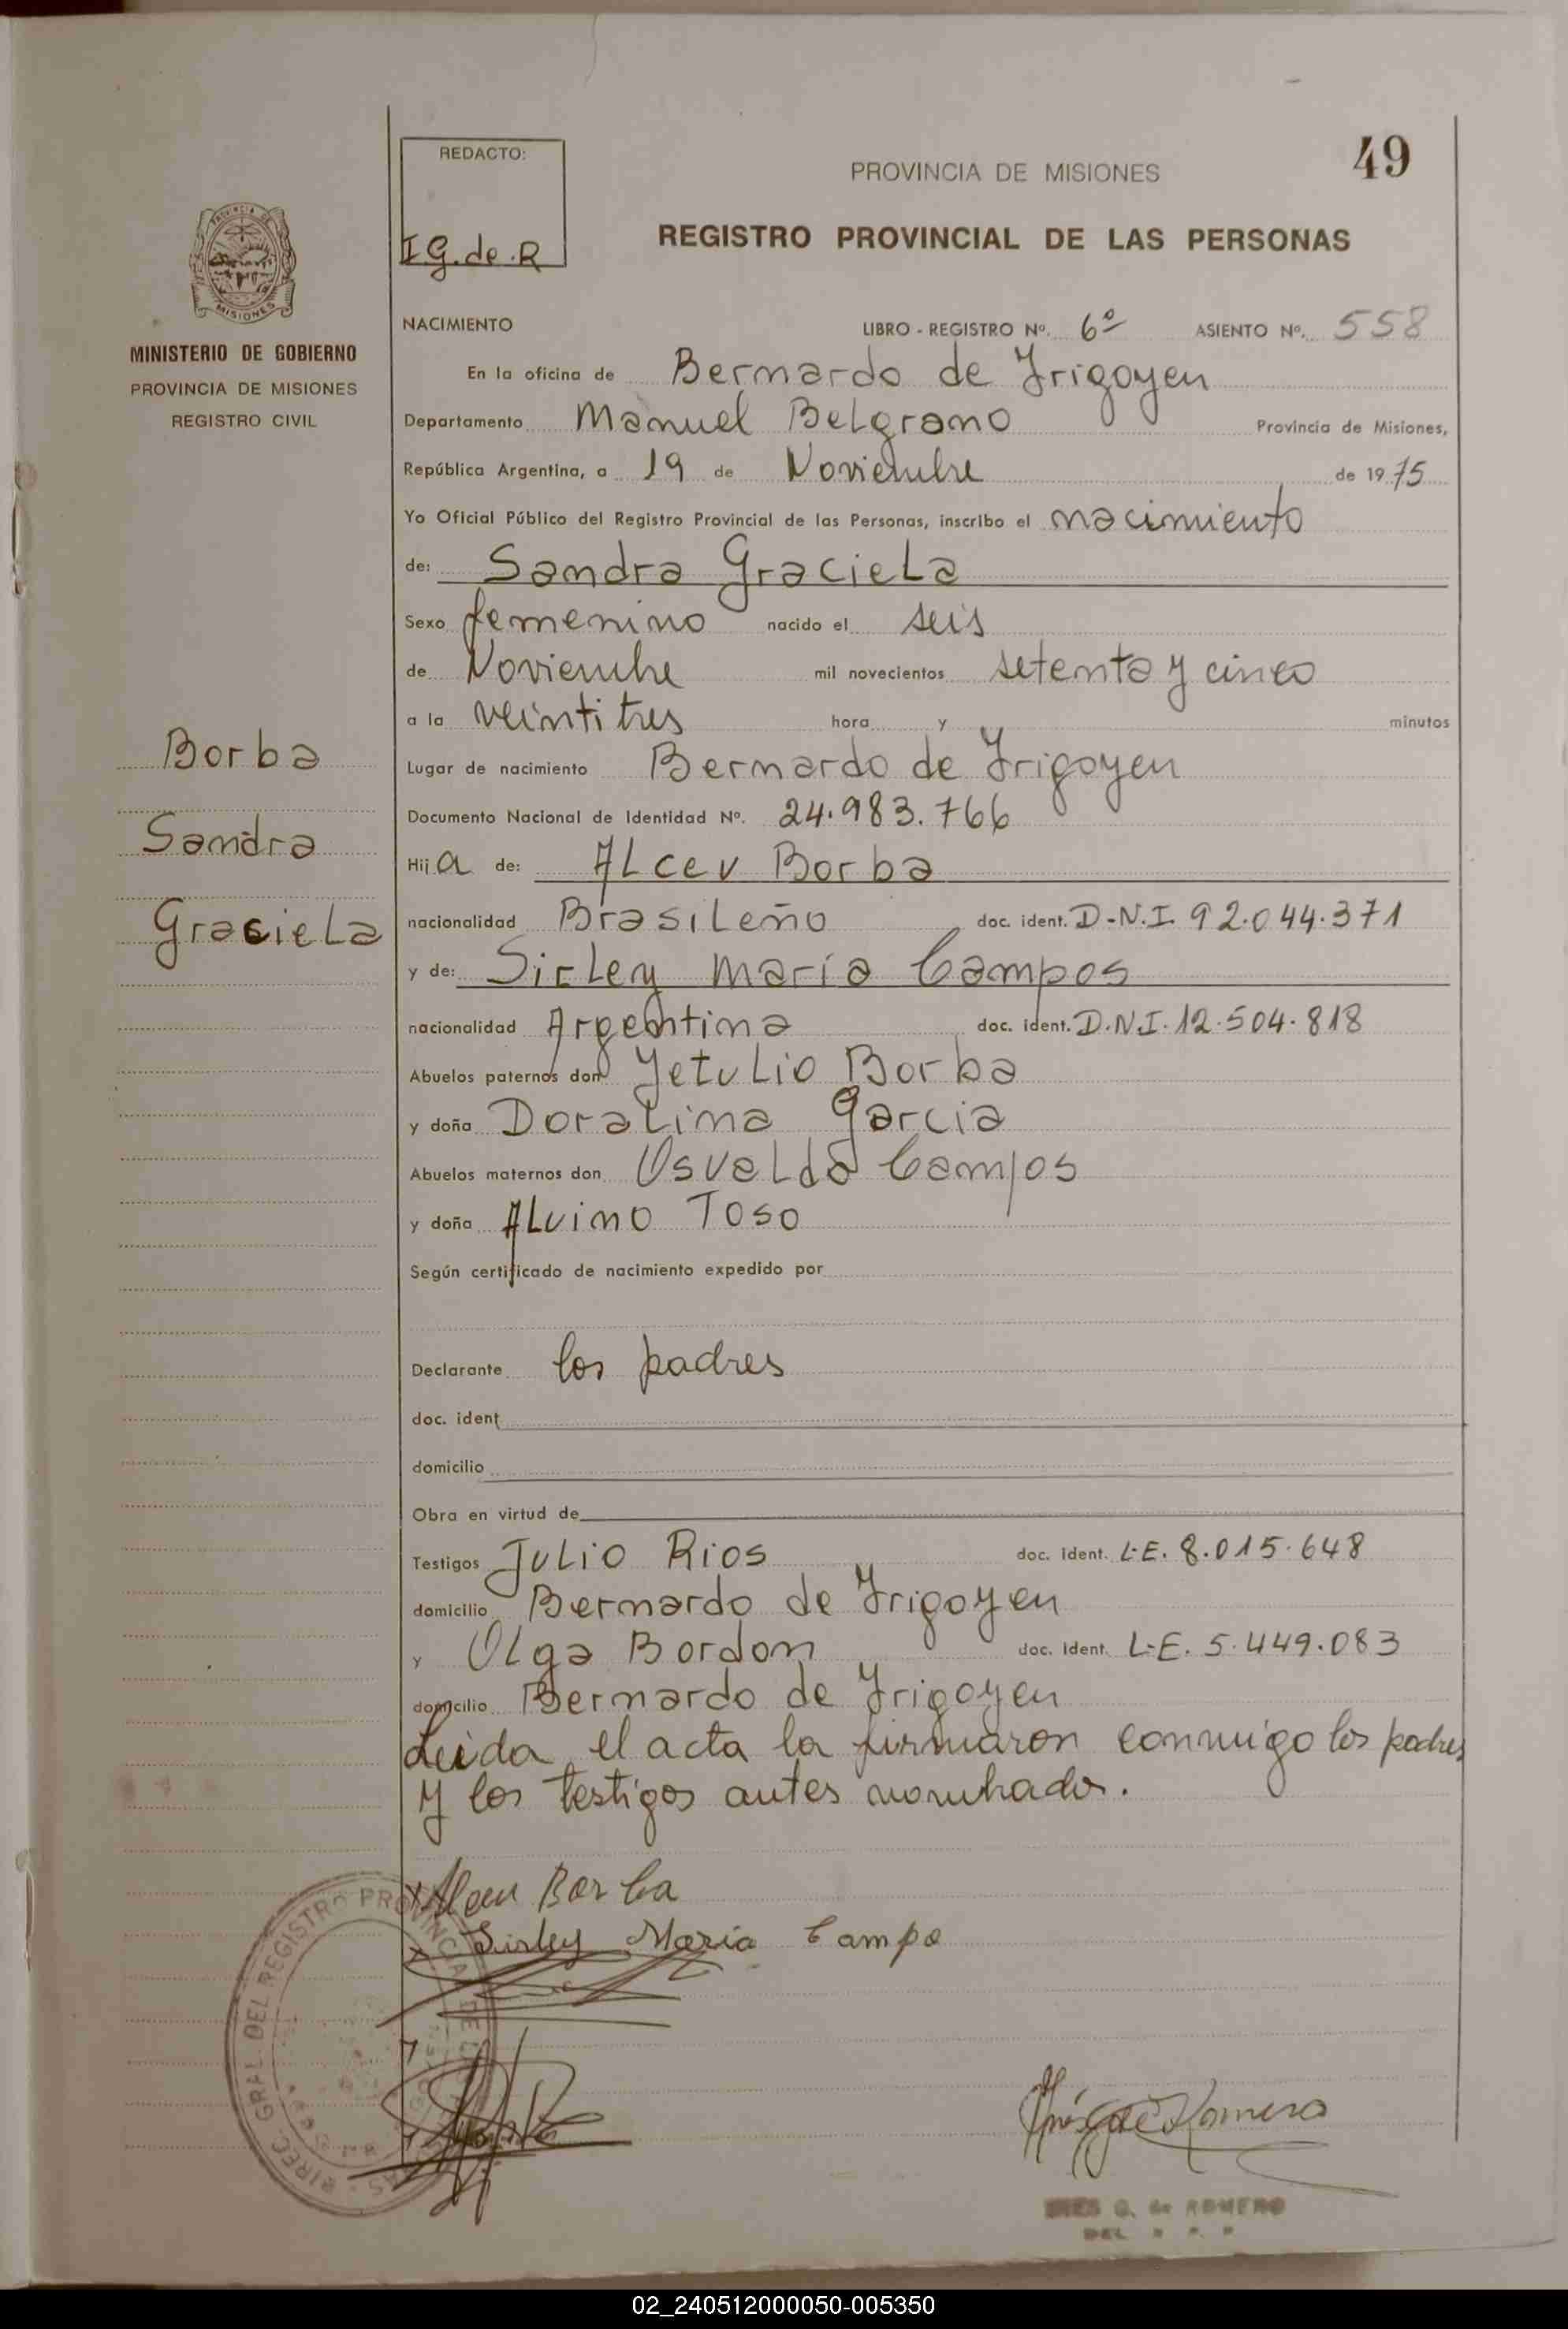 REDACTO:
I G. de. R
PROVINCIA DE MISIONES
49
REGISTRO PROVINCIAL DE LAS PERSONAS
PROVINCIA DE
MISIONES
MINISTERIO DE GOBIERNO
PROVINCIA DE MISIONES
REGISTRO CIVIL
NACIMIENTO LIBRO - REGISTRO Nº. 6º ASIENTO Nº. 558
En la oficina de Bernardo de Yrigoyen
Departamento Manuel Belgrano Provincia de Misiones,
República Argentina, a 19 de Noviembre de 1975
Yo Oficial Público del Registro Provincial de las Personas, inscribo el nacimiento
de: Sandra Graciela
Sexo femenino nacido el seis
de Noviembre mil novecientos setenta y cinco
a la veintitres hora y minutos
Borba
Sandra
Graciela
Lugar de nacimiento Bernardo de Yrigoyen
Documento Nacional de Identidad Nº. 24.983.766
Hija de: Alceu Borba
nacionalidad Brasileño doc. ident. D.N.I. 92.044.371
y de: Sirley María Campos
nacionalidad Argentina doc. ident. D.N.I. 12.504.818
Abuelos paternos don Yetulio Borba
y doña Doralina Garcia
Abuelos maternos don Osvaldo Campos
y doña Alvino Toso
Según certificado de nacimiento expedido por
Declarante los padres
doc. ident
domicilio
Obra en virtud de
Testigos Julio Rios doc. ident. L.E. 8.015.648
domicilio Bernardo de Yrigoyen
y Olga Bordon doc. ident. L.E. 5.449.083
domicilio Bernardo de Yrigoyen
Leida el acta la firmaron conmigo los padres
y los testigos antes nombrados.
Alceu Borba
Sirley Maria Campo
DIREC. GRAL. DEL REGISTRO PROVINCIAL DE
Inés G de Romero
INES G. de ROMERO
DEL
02_240512000050-005350